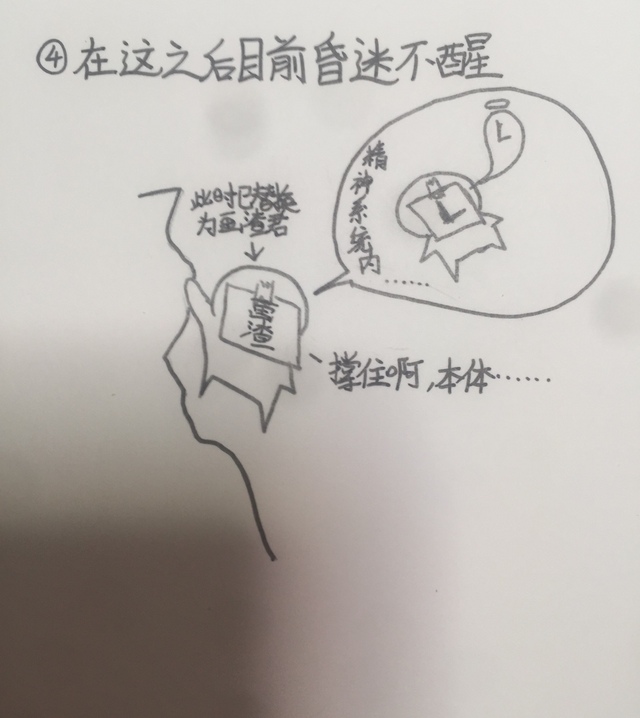 ④在这之后目前昏迷不醒
此时已替换
为画渣君
精神系统内……
L
L
画渣
撑住啊,本体……